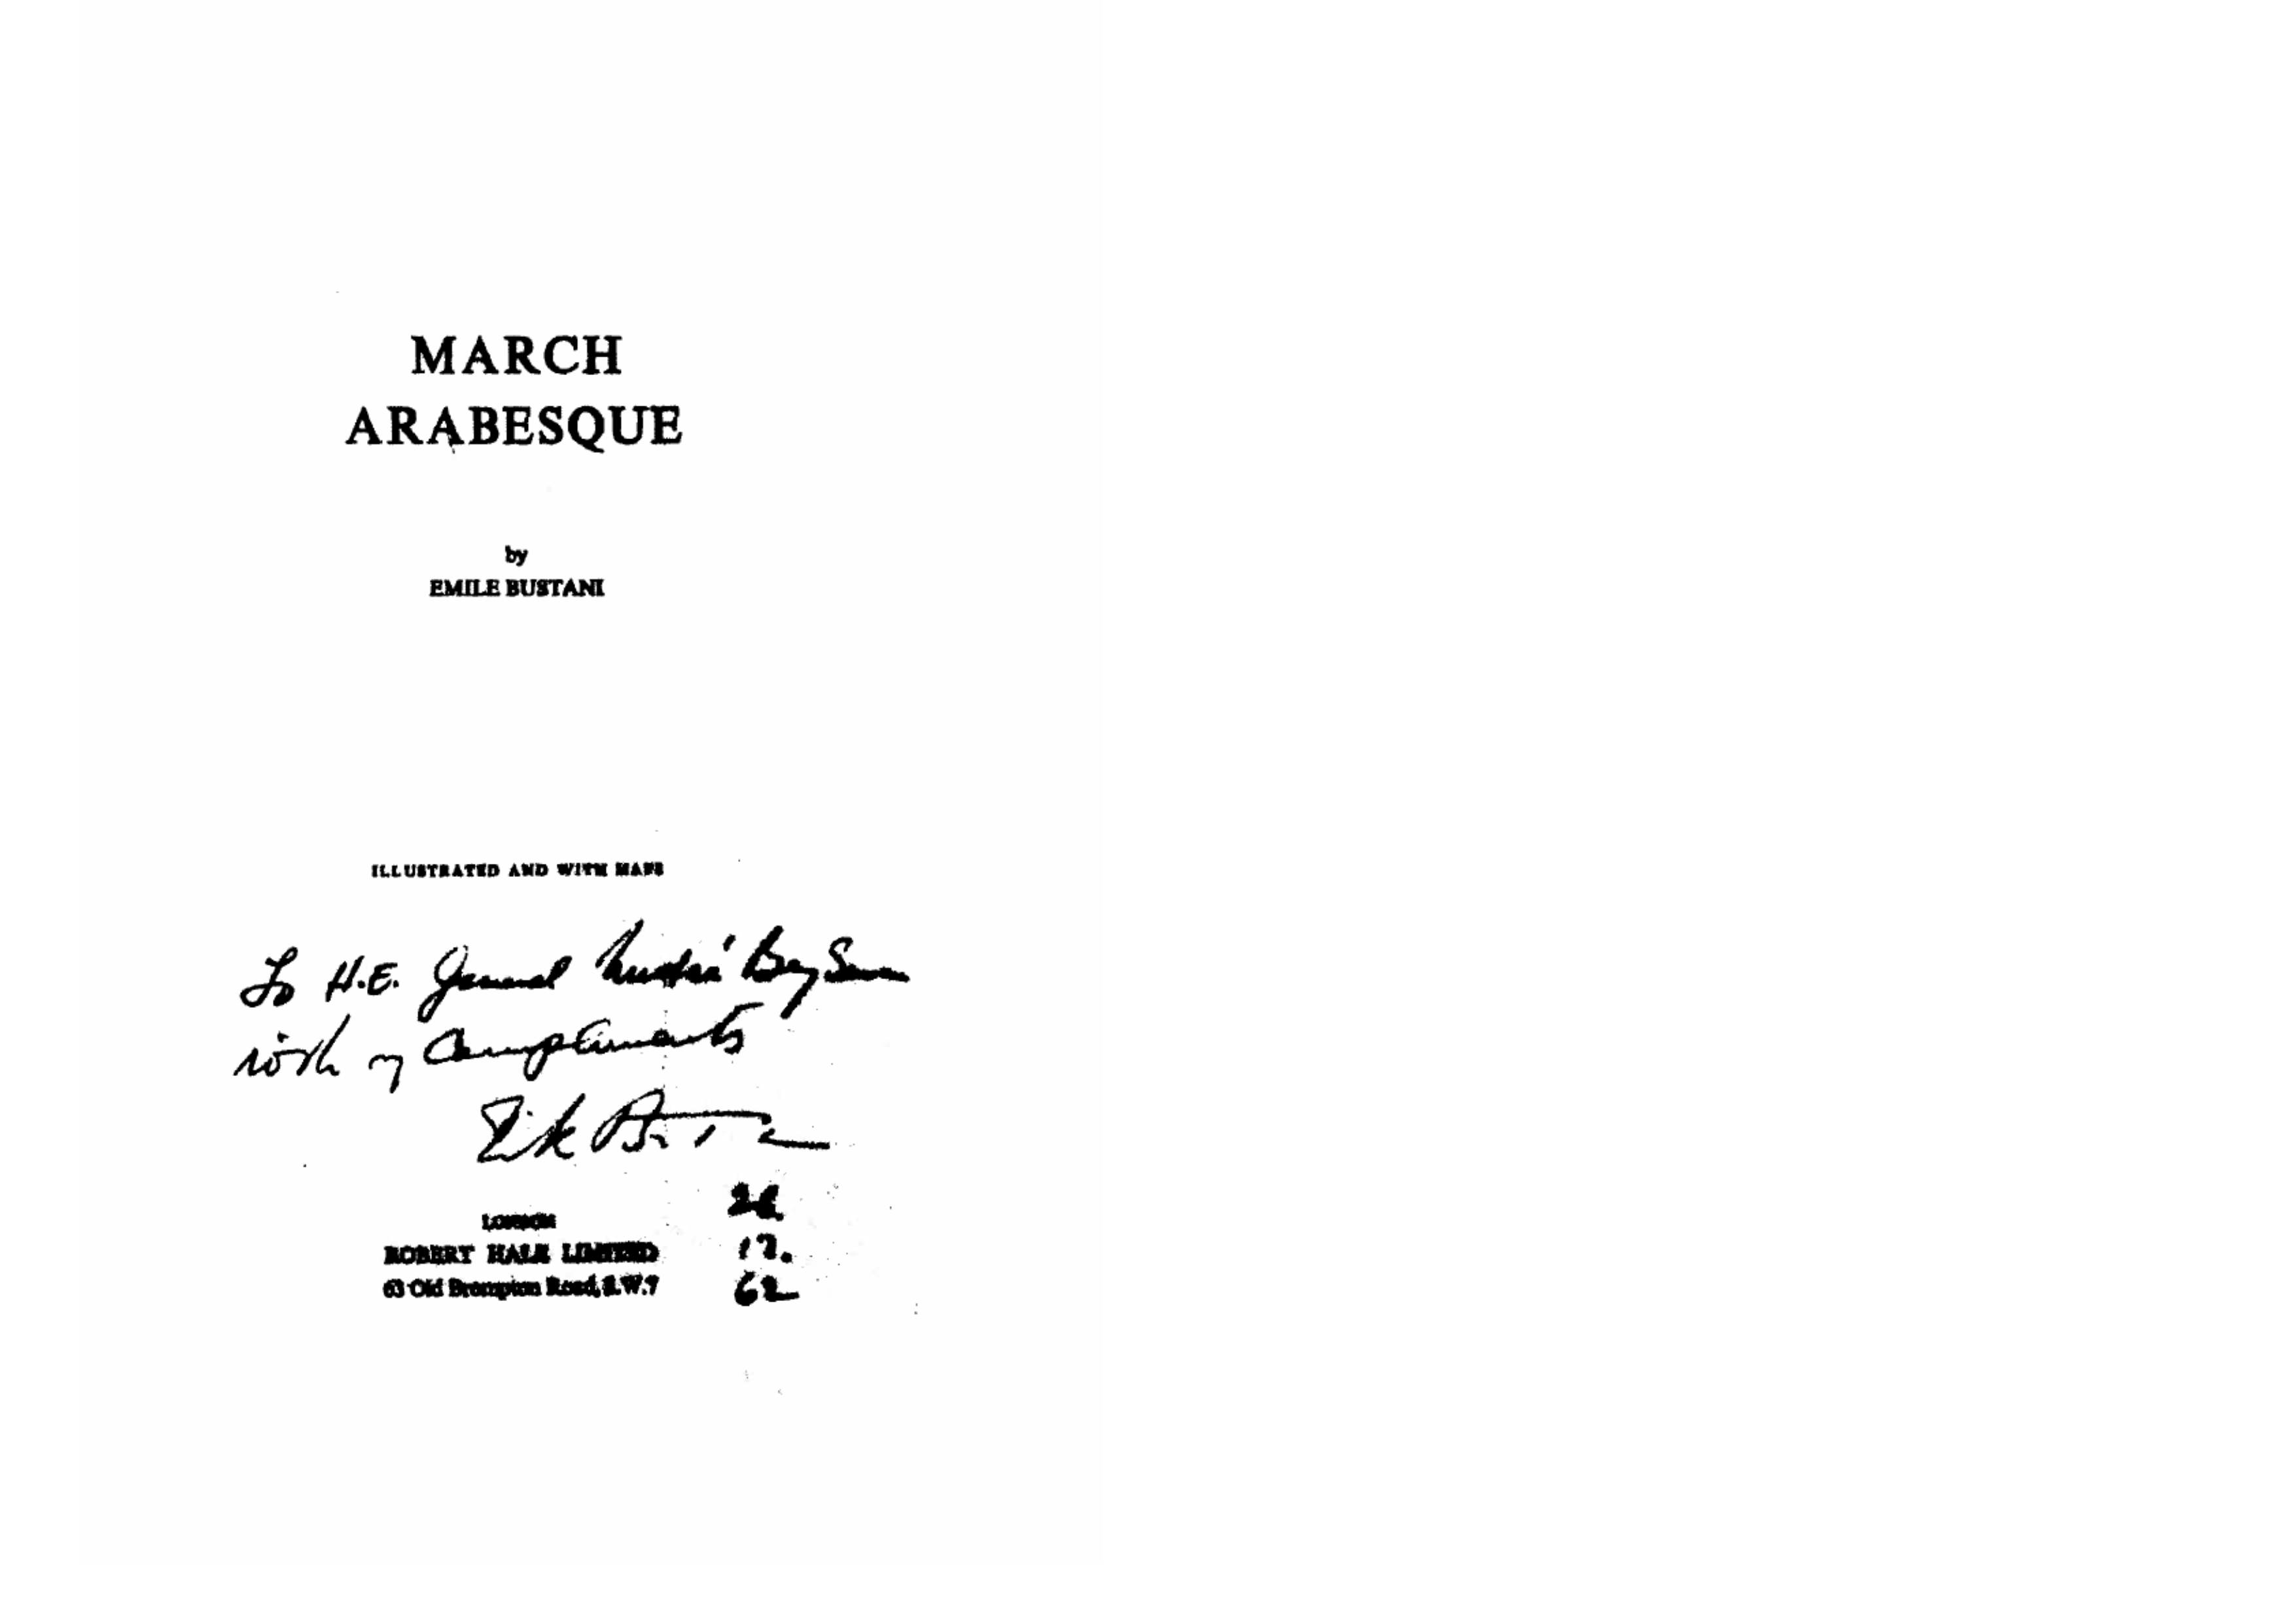 MARCH
ARABESQUE
by
EMILE BUSTANI
ILLUSTRATED AND WITH MAPS
To H.E. General Bey
with my Compliments
LONDON
ROBERT HALE LIMITED
63 Old Brompton Road, S.W.7
12.
62